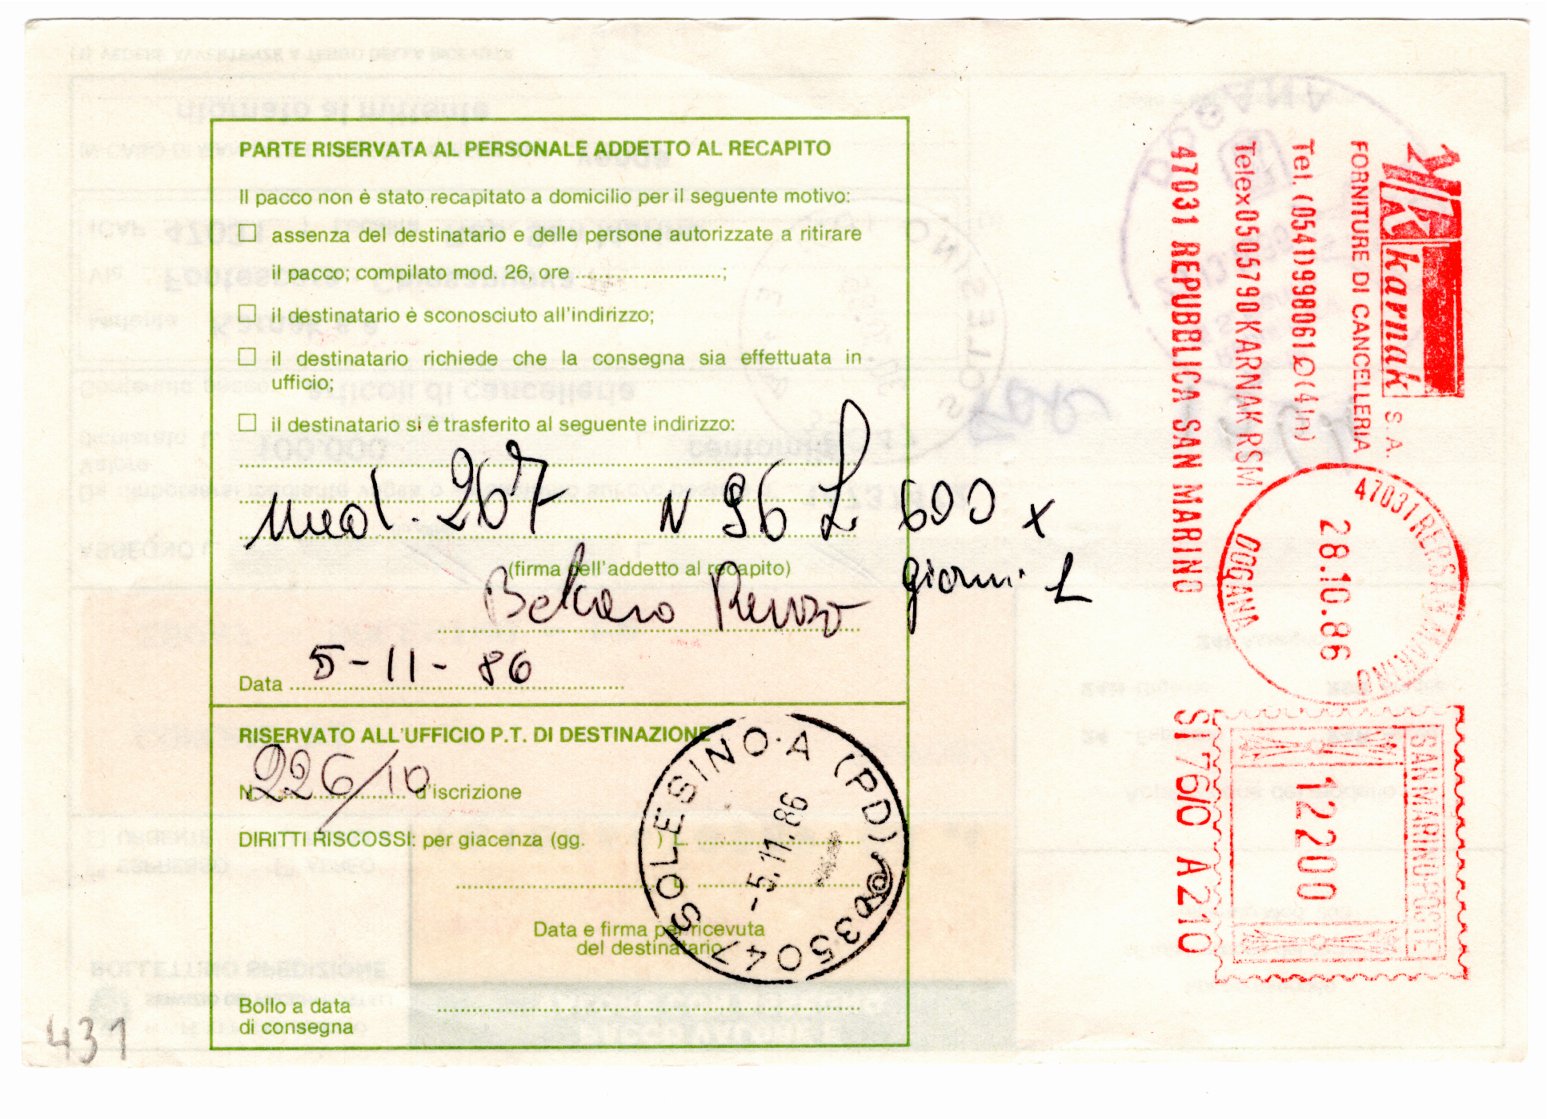 PARTE RISERVATA AL PERSONALE ADDETTO AL RECAPITO
Il pacco non è stato recapitato a domicilio per il seguente motivo:
assenza del destinatario e delle persone autorizzate a ritirare
il pacco; compilato mod. 26, ore ..........................;
il destinatario è sconosciuto all'indirizzo;
il destinatario richiede che la consegna sia effettuata in
ufficio;
il destinatario si è trasferito al seguente indirizzo:
mod. 267 N 96 £ 600 x
giorni 1
(firma dell'addetto al recapito)
Belcaro Renzo
Data 5-11-86
RISERVATO ALL'UFFICIO P.T. DI DESTINAZIONE
N. 226/10 d'iscrizione
DIRITTI RISCOSSI: per giacenza (gg. ) L.
L.
Data e firma per ricevuta
del destinatario
Bollo a data
di consegna
SOLESINO·A (PD)
-5.11.86
35047
431
karnak S.A.
FORNITURE DI CANCELLERIA
Tel. (0541)998061 (4 ln)
Telex0505790KARNAK RSM
47031 REPUBBLICA SAN MARINO
47031 REP.SAN MARINO
28.10.86
DOGANA
SAN MARINO POSTE
12200
S176/0 A210
articoli di cancelleria
100.000
DOGANA